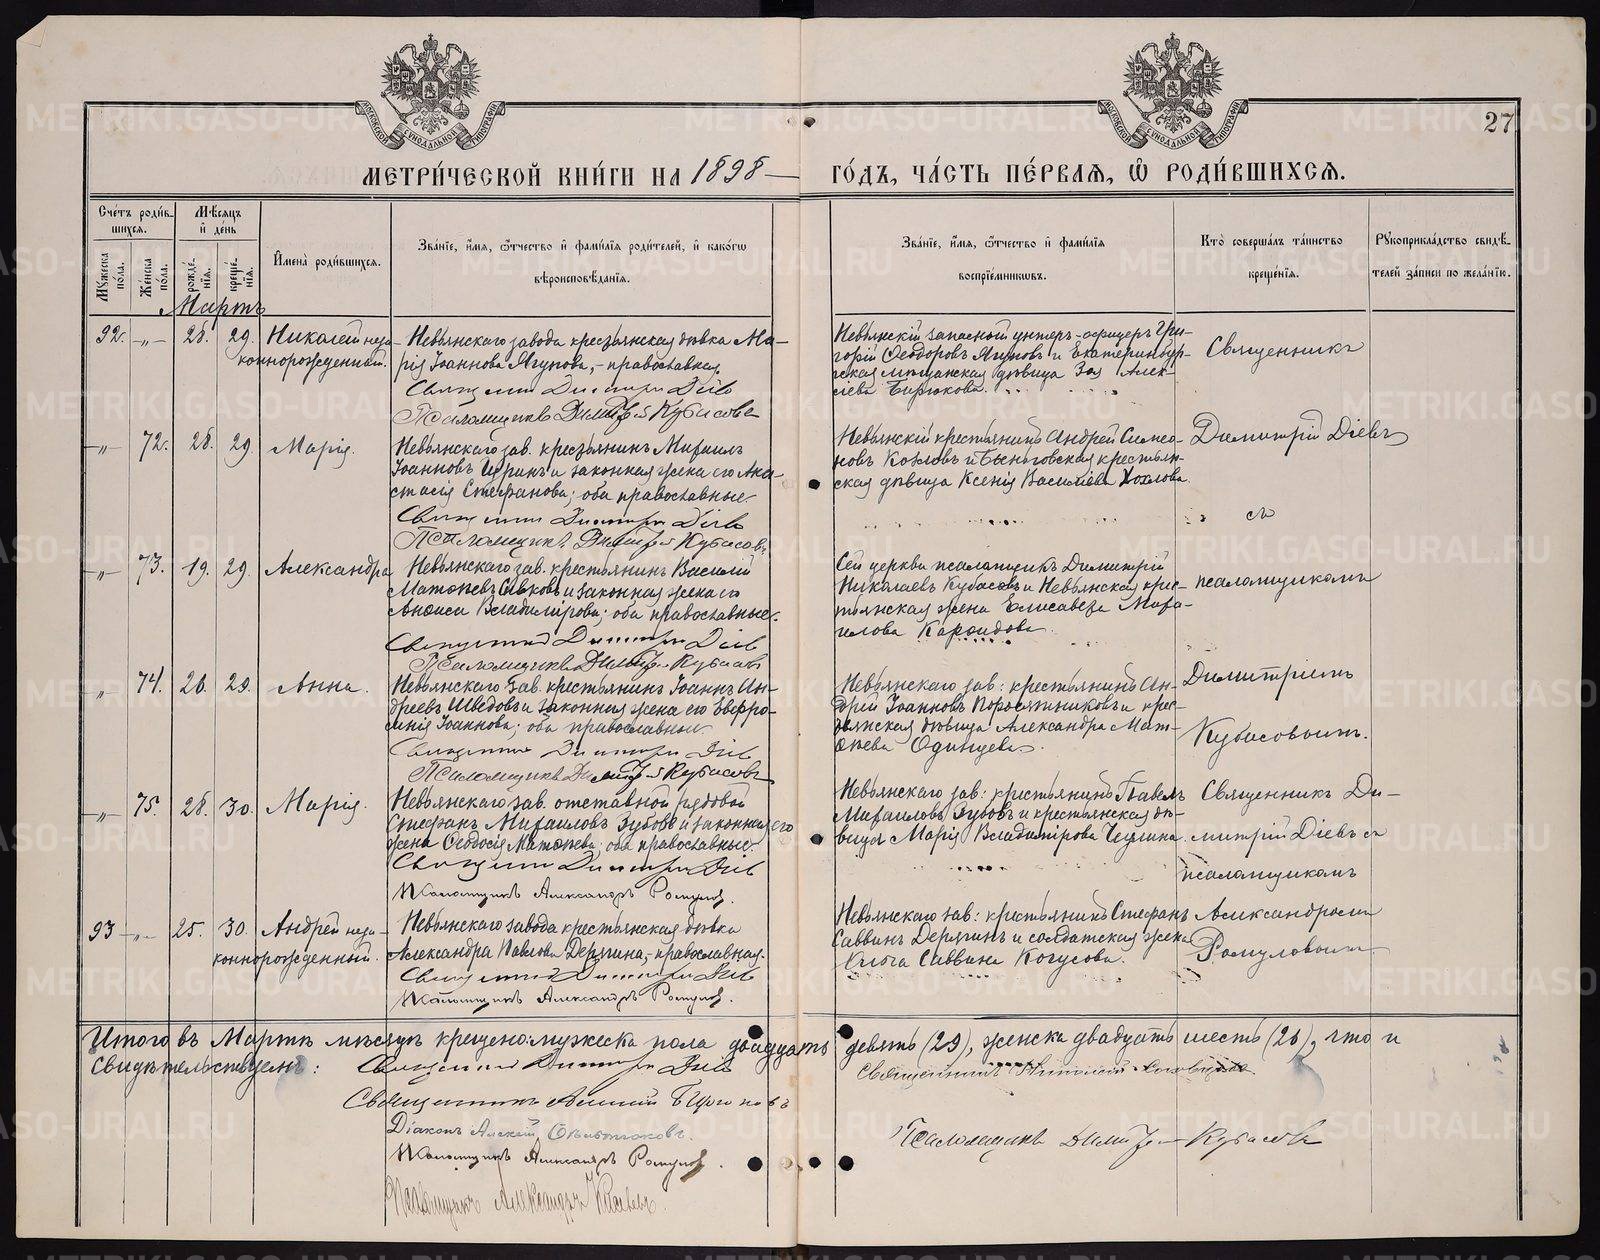 27
МЕТРИ́ЧЕСКОЙ КНИ́ГИ НА 1898 ГО́ДЪ, ЧА́СТЬ ПЕ́РВАЯ, Ѡ РОДИ́ВШИХСЯ.
Сче́тъ роди́в-
шихся.
Му́жеска по́ла.
Же́нска по́ла.
Мѣ́сяцъ и де́нь
рожде́-
нія.
креще́-
нія.
Имена̀ роди́вшихся.
Зва́ніе, и́мя, о́тчество и фами́лія роди́телей, и како́гѡ
вѣроисповѣ́данія.
Зва́ніе, и́мя, о́тчество и фами́лія
воспріе́мниковъ.
Кто̀ соверша́лъ та́инство
креще́нія.
Рукоприкла́дство свидѣ́-
телей за́писи по жела́нію.
Мартъ
92. -„- 28. 29. Николай неза-
коннорожденный.
Невьянскаго завода крестьянская дѣвка Ма-
рія Іоаннова Ягупова, - православная.
Священникъ Димитрій Діевъ
Псаломщикъ Димитрій Кубасовъ
Невьянскій запасной унтеръ-офицеръ Гри-
горій Ѳеодоровъ Ягуповъ и Екатеринбур-
гская мѣщанская дѣвица Зоя Алек-
сіева Бирюкова.
Священникъ
-„- 72. 28. 29. Марія.
Невьянскаго зав. крестьянинъ Михаилъ
Іоанновъ и законная жена его Ана-
стасія Стефанова; оба православные.
Священникъ Димитрій Діевъ
Псаломщикъ Димитрій Кубасовъ
Невьянскій крестьянинъ Андрей Симео-
новъ Козловъ и Быньговская крестьян-
ская дѣвица Ксенія Василіева Хохлова.
Димитрій Діевъ
съ
-„- 73. 19. 29. Александра
Невьянскаго зав. крестьянинъ Василій
Матѳіевъ и законная жена его
Анѳиса Владимірова; оба православные.
Священникъ Димитрій Діевъ
Псаломщикъ Димитрій Кубасовъ
Сей церкви псаломщикъ Димитрій
Николаевъ Кубасовъ и Невьянская крес-
тьянская жена Елисавета Миха-
илова
псаломщикомъ
„ 74. 26. 29. Анна.
Невьянскаго зав. крестьянинъ Іоаннъ Ан-
дреевъ Шведовъ и законная жена его Евфро-
синія Іоаннова; оба православные.
Священникъ Димитрій Діевъ
Псаломщикъ Димитрій Кубасовъ
Невьянскаго зав: крестьянинъ Ан-
дрей Іоанновъ Поросятниковъ и крес-
тьянская дѣвица Александра Мат-
ѳіева Одинцева.
Димитріемъ
Кубасовымъ.
-„- 75. 28. 30. Марія.
Невьянскаго зав. отставной рядовой
Стефанъ Михаиловъ Зубовъ и законная его
жена Ѳеодосія Матѳіева; оба православные.
Священникъ Димитрій Діевъ
Псаломщикъ Александръ Ромуловъ.
Невьянскаго зав: крестьянинъ Павелъ
Михаиловъ Зубовъ и крестьянская дѣ-
вица Марія Владимірова
Священникъ Ди-
митрій Діевъ съ
псаломщикомъ
93 -„- 25. 30. Андрей неза-
коннорожденный.
Невьянскаго завода крестьянская дѣвка
Александра Павлова Дерягина, - православная.
Священникъ Димитрій Діевъ
Псаломщикъ Александръ Ромуловъ.
Невьянскаго зав: крестьянинъ Стефанъ
Саввинъ Дерягинъ и солдатская жена
Саввина Когусова.
Александромъ
Ромуловымъ
Итого въ Мартѣ мѣсяцѣ крещено: мужеска пола двадцать девять (29), женска двадцать шесть (26), что и
свидѣтельствуемъ: Священникъ Димитрій Діевъ
Священникъ Николай
Священникъ
Діаконъ Алексій
Псаломщикъ Димитрій Кубасовъ
Псаломщикъ Александръ Ромуловъ.
Псаломщикъ Александръ
METRIKI.GASO-URAL.RU